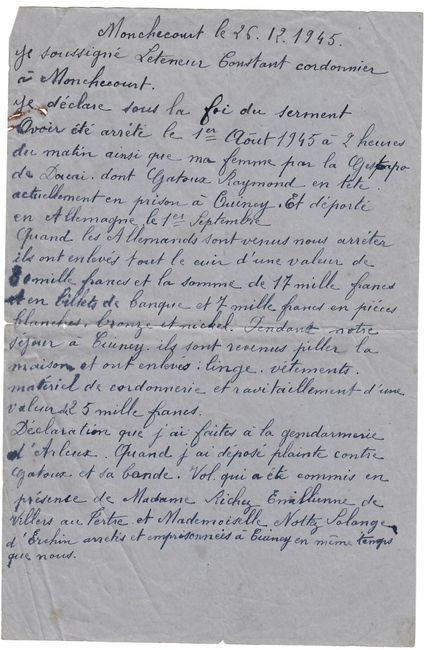 Monchecourt le 26.12.1945.
Je soussigné Leteneur Constant cordonnier
à Monchecourt.
Je déclare sous la foi du serment
Avoir été arrêté le 1er Août 1945 à 2 heures
du matin ainsi que ma femme par la Gestapo
de Douai. dont Gatoux Raymond en tête.
actuellement en prison à Cuincy. Et déporté
en Allemagne le 1er Septembre
Quand les Allemands sont venus nous arrêter
ils ont enlevés tout le cuir d'une valeur de
mille francs et la somme de 17 mille francs
en billets de banque et 7 mille francs en pièces
blanches, bronze et nickel. Pendant notre
séjour à Cuincy. ils sont revenus piller la
maison et ont enlevés: linge. vêtements.
matériel de cordonnerie et ravitaillement d'une
valeur de 5 mille francs.
Déclaration que j'ai faites à la gendarmerie
d'Arleux. Quand j'ai déposé plainte contre
Gatoux et sa bande. Vol qui a été commis en
présence de Madame Richez Emilienne de
Villers au Tertre et Mademoiselle Solange
d'Erchin arretés et emprisonnées à Cuincy en même temps
que nous.